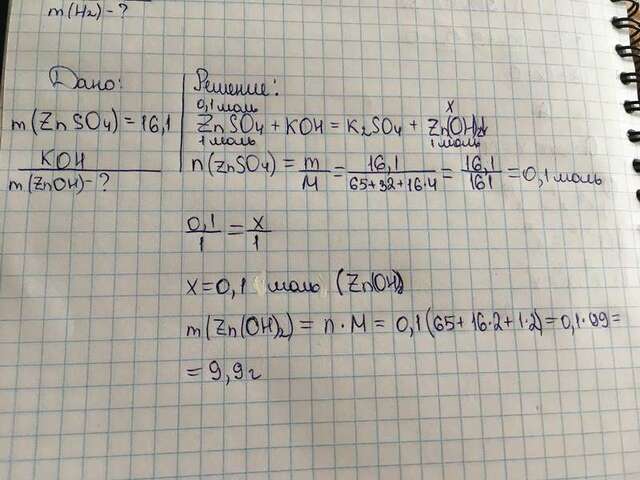 m(H₂) - ?
Дано:
m(ZnSO₄) = 16,1
KOH
m(ZnOH) - ?
Решение:
0,1 моль x
ZnSO₄ + KOH = K₂SO₄ + Zn(OH)₂
1 моль 1 моль
n(ZnSO₄) = m/M = 16,1/(65+32+16·4) = 16,1/161 = 0,1 моль
0,1/1 = x/1
x = 0,1 моль (Zn(OH)₂
m(Zn(OH)₂) = n · M = 0,1(65+16·2+1·2) = 0,1·99 =
= 9,9 г